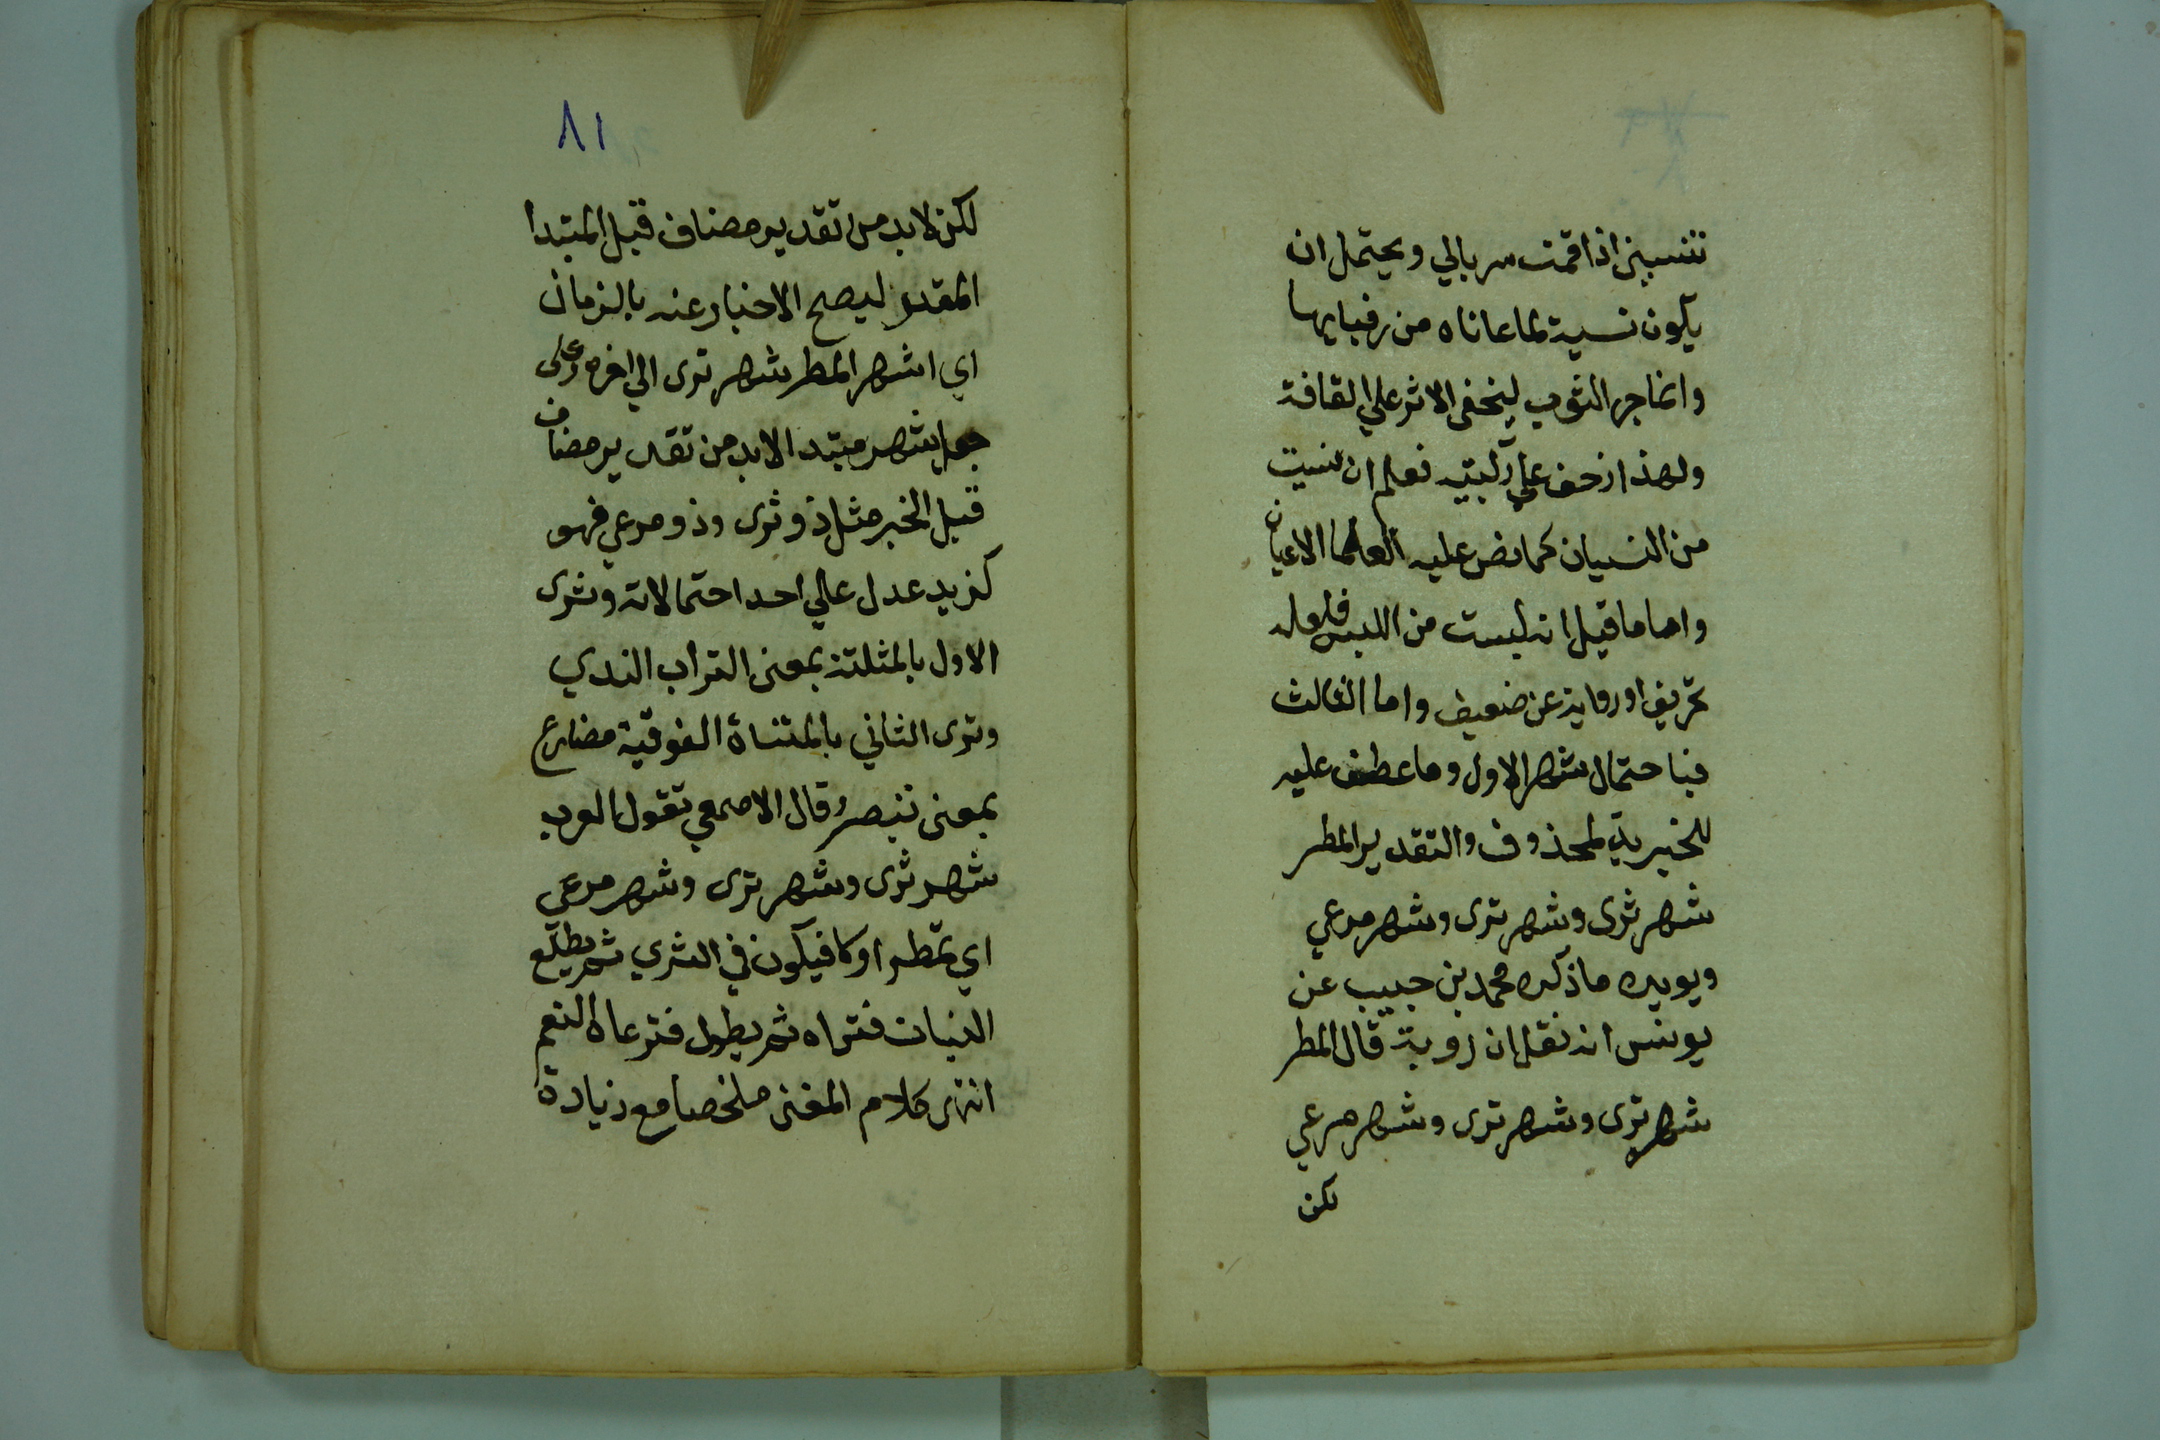 تنسيني اذا قمت سربالي ويحتمل ان
يكون نسية لما عاناه من رقبايها
وانما جر الثوب ليخفى الاثر علي القافة
ولهذا زحف علي ركبتيه فعلم ان نسيت
من النسيان كما نص عليه العلما الاعيان
واما ما قيل انه لبست من اللبس فلعله
تحريف او رواية عن ضعيف واما الثالث
فبا حتمال شهر الاول وما عطف عليه
للخبرية لمحذوف والتقدير المطر
شهر ثرى وشهر ترى وشهر مرعي
ويويده ما ذكره محمد بن حبيب عن
يونس انه نقل ان روبة قال المطر
شهر ثرى وشهر ترى وشهر مرعي
لكن
٨١
لكن لابد من تقدير مضاف قبل المبتدا
المقدر ليصح الاخبار عنه بالزمان
اي اشهر المطر شهر ترى الي اخره وعلى
جعل شهر مبتدا لابد من تقدير مضاف
قبل الخبر مثل ذو ثرى وذو مرعي فهو
كزيد عدل علي احد احتمالاته وثرى
الاول بالمثلثة بمعنى التراب الندي
وترى الثاني بالمتناة الفوقية مضارع
بمعنى تبصر وقال الاصمعي تقول العرب
شهر ثرى وشهر ترى وشهر مرعي
اي تمطر اولا فيكون في الثري ثم يطلع
النبات فتراه ثم يطول فترعاه النعم
انتهى كلام المغنى ملخصا مع زيادة